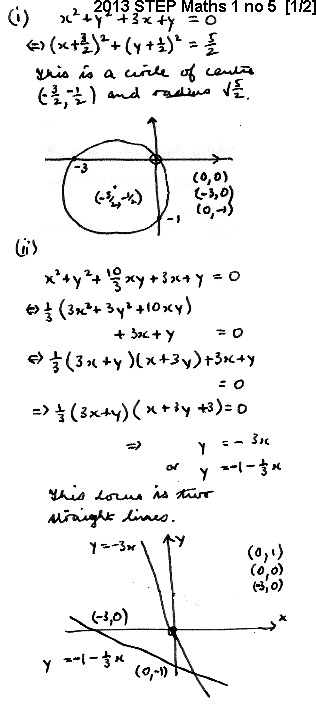 2013 STEP Maths 1 no 5 [1/2]
(i) x² + y² + 3x + y = 0
⇔ (x + 3/2)² + (y + 1/2)² = 5/2
This is a circle of centre
(-3/2, -1/2) and radius √5/2.
-3
(0,0)
(-3,0)
(0,-1)
-1
(ii)
x² + y² + 10/3 xy + 3x + y = 0
⇔ 1/3 (3x² + 3y² + 10xy)
+ 3x + y = 0
⇔ 1/3 (3x + y)(x + 3y) + 3x + y
= 0
⇒ 1/3 (3x + y)(x + 3y + 3) = 0
⇒ y = - 3x
or y = -1 - 1/3 x
This locus is two
straight lines.
y = -3x
y
(0,1)
(0,0)
(-3,0)
(-3,0)
x
y = -1 - 1/3 x
(0,-1)